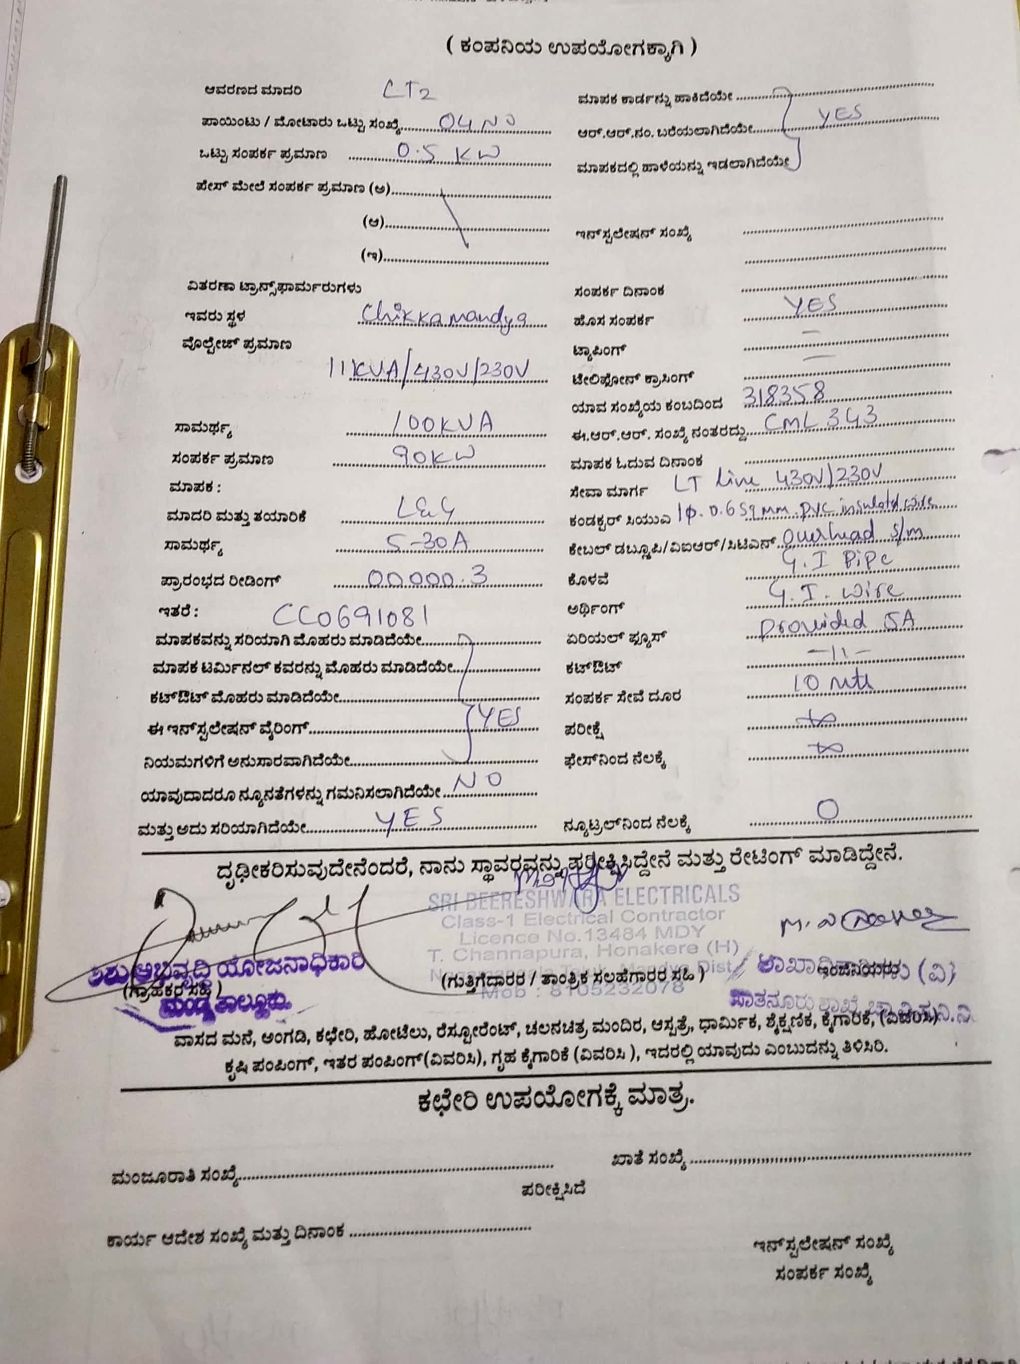 ( ಕಂಪನಿಯ ಉಪಯೋಗಕ್ಕಾಗಿ )
ಆವರಣದ ಮಾದರಿ CT2
ಮಾಪಕ ಕಾರ್ಡನ್ನು ಹಾಕಿದೆಯೇ
ಪಾಯಿಂಟು / ಮೋಟಾರು ಒಟ್ಟು ಸಂಖ್ಯೆ 04 NO
ಆರ್.ಆರ್.ನಂ. ಬರೆಯಲಾಗಿದೆಯೇ YES
ಒಟ್ಟು ಸಂಪರ್ಕ ಪ್ರಮಾಣ 0.5 KW
ಮಾಪಕದಲ್ಲಿ ಹಾಳೆಯನ್ನು ಇಡಲಾಗಿದೆಯೇ
ಪೇಸ್ ಮೇಲೆ ಸಂಪರ್ಕ ಪ್ರಮಾಣ (ಅ)
(ಆ)
ಇನ್‌ಸ್ಟಲೇಷನ್ ಸಂಖ್ಯೆ
(ಇ)
ವಿತರಣಾ ಟ್ರಾನ್ಸ್‌ಫಾರ್ಮರುಗಳು
ಸಂಪರ್ಕ ದಿನಾಂಕ
ಇವರು ಸ್ಥಳ Chikkamandya
ಹೊಸ ಸಂಪರ್ಕ YES
ವೋಲ್ಟೇಜ್ ಪ್ರಮಾಣ
ಟ್ಯಾಪಿಂಗ್ —
11KVA/430V/230V
ಟೇಲಿಫೋನ್ ಕ್ರಾಸಿಂಗ್ —
ಯಾವ ಸಂಖ್ಯೆಯ ಕಂಬದಿಂದ 318358
ಸಾಮರ್ಥ್ಯ 100KVA
ಈ.ಆರ್.ಆರ್. ಸಂಖ್ಯೆ ನಂತರದ್ದು CML 343
ಸಂಪರ್ಕ ಪ್ರಮಾಣ 90KW
ಮಾಪಕ ಓದುವ ದಿನಾಂಕ
ಮಾಪಕ :
ಸೇವಾ ಮಾರ್ಗ LT line 430V/230V
ಮಾದರಿ ಮತ್ತು ತಯಾರಿಕೆ L&G
ಕಂಡಕ್ಟರ್ ಸಿಯುಎ 1φ. 0.6 sqmm. PVC insulated wire
ಸಾಮರ್ಥ್ಯ 5-30A
ಕೇಬಲ್ ಡಬ್ಲೂಪಿ/ವಿಐಆರ್/ಸಿಟಿಎಸ್ Overhead S/m
ಪ್ರಾರಂಭದ ರೀಡಿಂಗ್ 00000.3
ಕೊಳವೆ G.I Pipe
ಇತರೆ : CC0691081
ಅರ್ಥಿಂಗ್ G.I. wire
ಮಾಪಕವನ್ನು ಸರಿಯಾಗಿ ಮೊಹರು ಮಾಡಿದೆಯೇ
ಏರಿಯಲ್ ಫ್ಯೂಸ್ provided 5A
ಮಾಪಕ ಟರ್ಮಿನಲ್ ಕವರನ್ನು ಮೊಹರು ಮಾಡಿದೆಯೇ
ಕಟ್‌ಔಟ್ —11—
ಕಟ್‌ಔಟ್ ಮೊಹರು ಮಾಡಿದೆಯೇ
ಸಂಪರ್ಕ ಸೇವೆ ದೂರ 10 mts
ಈ ಇನ್‌ಸ್ಟಲೇಷನ್ ವೈರಿಂಗ್ YES
ಪರೀಕ್ಷೆ ∞
ನಿಯಮಗಳಿಗೆ ಅನುಸಾರವಾಗಿದೆಯೇ
ಫೇಸ್‌ನಿಂದ ನೆಲಕ್ಕೆ ∞
ಯಾವುದಾದರೂ ನ್ಯೂನತೆಗಳನ್ನು ಗಮನಿಸಲಾಗಿದೆಯೇ NO
ಮತ್ತು ಅದು ಸರಿಯಾಗಿದೆಯೇ YES
ನ್ಯೂಟ್ರಲ್‌ನಿಂದ ನೆಲಕ್ಕೆ 0
ದೃಢೀಕರಿಸುವುದೇನೆಂದರೆ, ನಾನು ಸ್ಥಾವರವನ್ನು ಪರೀಕ್ಷಿಸಿದ್ದೇನೆ ಮತ್ತು ರೇಟಿಂಗ್ ಮಾಡಿದ್ದೇನೆ.
SRI BEERESHWARA ELECTRICALS
Class-1 Electrical Contractor
Licence No.13484 MDY
T. Channapura, Honakere (H)
ಶಿಶು ಅಭಿವೃದ್ಧಿ ಯೋಜನಾಧಿಕಾರಿ
(ಗ್ರಾಹಕರ ಸಹಿ )
(ಗುತ್ತಿಗೆದಾರರ / ತಾಂತ್ರಿಕ ಸಲಹೆಗಾರರ ಸಹಿ )
ಇಂಜಿನಿಯರು
ಮಂಡ್ಯ ತಾಲ್ಲೂಕು.
Mob : 8105232078
ವಾಸದ ಮನೆ, ಅಂಗಡಿ, ಕಛೇರಿ, ಹೋಟೆಲು, ರೆಸ್ಟೋರೆಂಟ್, ಚಲನಚಿತ್ರ, ಮಂದಿರ, ಆಸ್ಪತ್ರೆ, ಧಾರ್ಮಿಕ, ಶೈಕ್ಷಣಿಕ, ಕೈಗಾರಿಕೆ, (ವಿವರಿಸಿ)
ಕೃಷಿ ಪಂಪಿಂಗ್, ಇತರ ಪಂಪಿಂಗ್(ವಿವರಿಸಿ), ಗೃಹ ಕೈಗಾರಿಕೆ (ವಿವರಿಸಿ ), ಇದರಲ್ಲಿ ಯಾವುದು ಎಂಬುದನ್ನು ತಿಳಿಸಿರಿ.
ಕಛೇರಿ ಉಪಯೋಗಕ್ಕೆ ಮಾತ್ರ.
ಮಂಜೂರಾತಿ ಸಂಖ್ಯೆ
ಖಾತೆ ಸಂಖ್ಯೆ
ಪರೀಕ್ಷಿಸಿದೆ
ಕಾರ್ಯ ಆದೇಶ ಸಂಖ್ಯೆ ಮತ್ತು ದಿನಾಂಕ
ಇನ್‌ಸ್ಟಲೇಷನ್ ಸಂಖ್ಯೆ
ಸಂಪರ್ಕ ಸಂಖ್ಯೆ